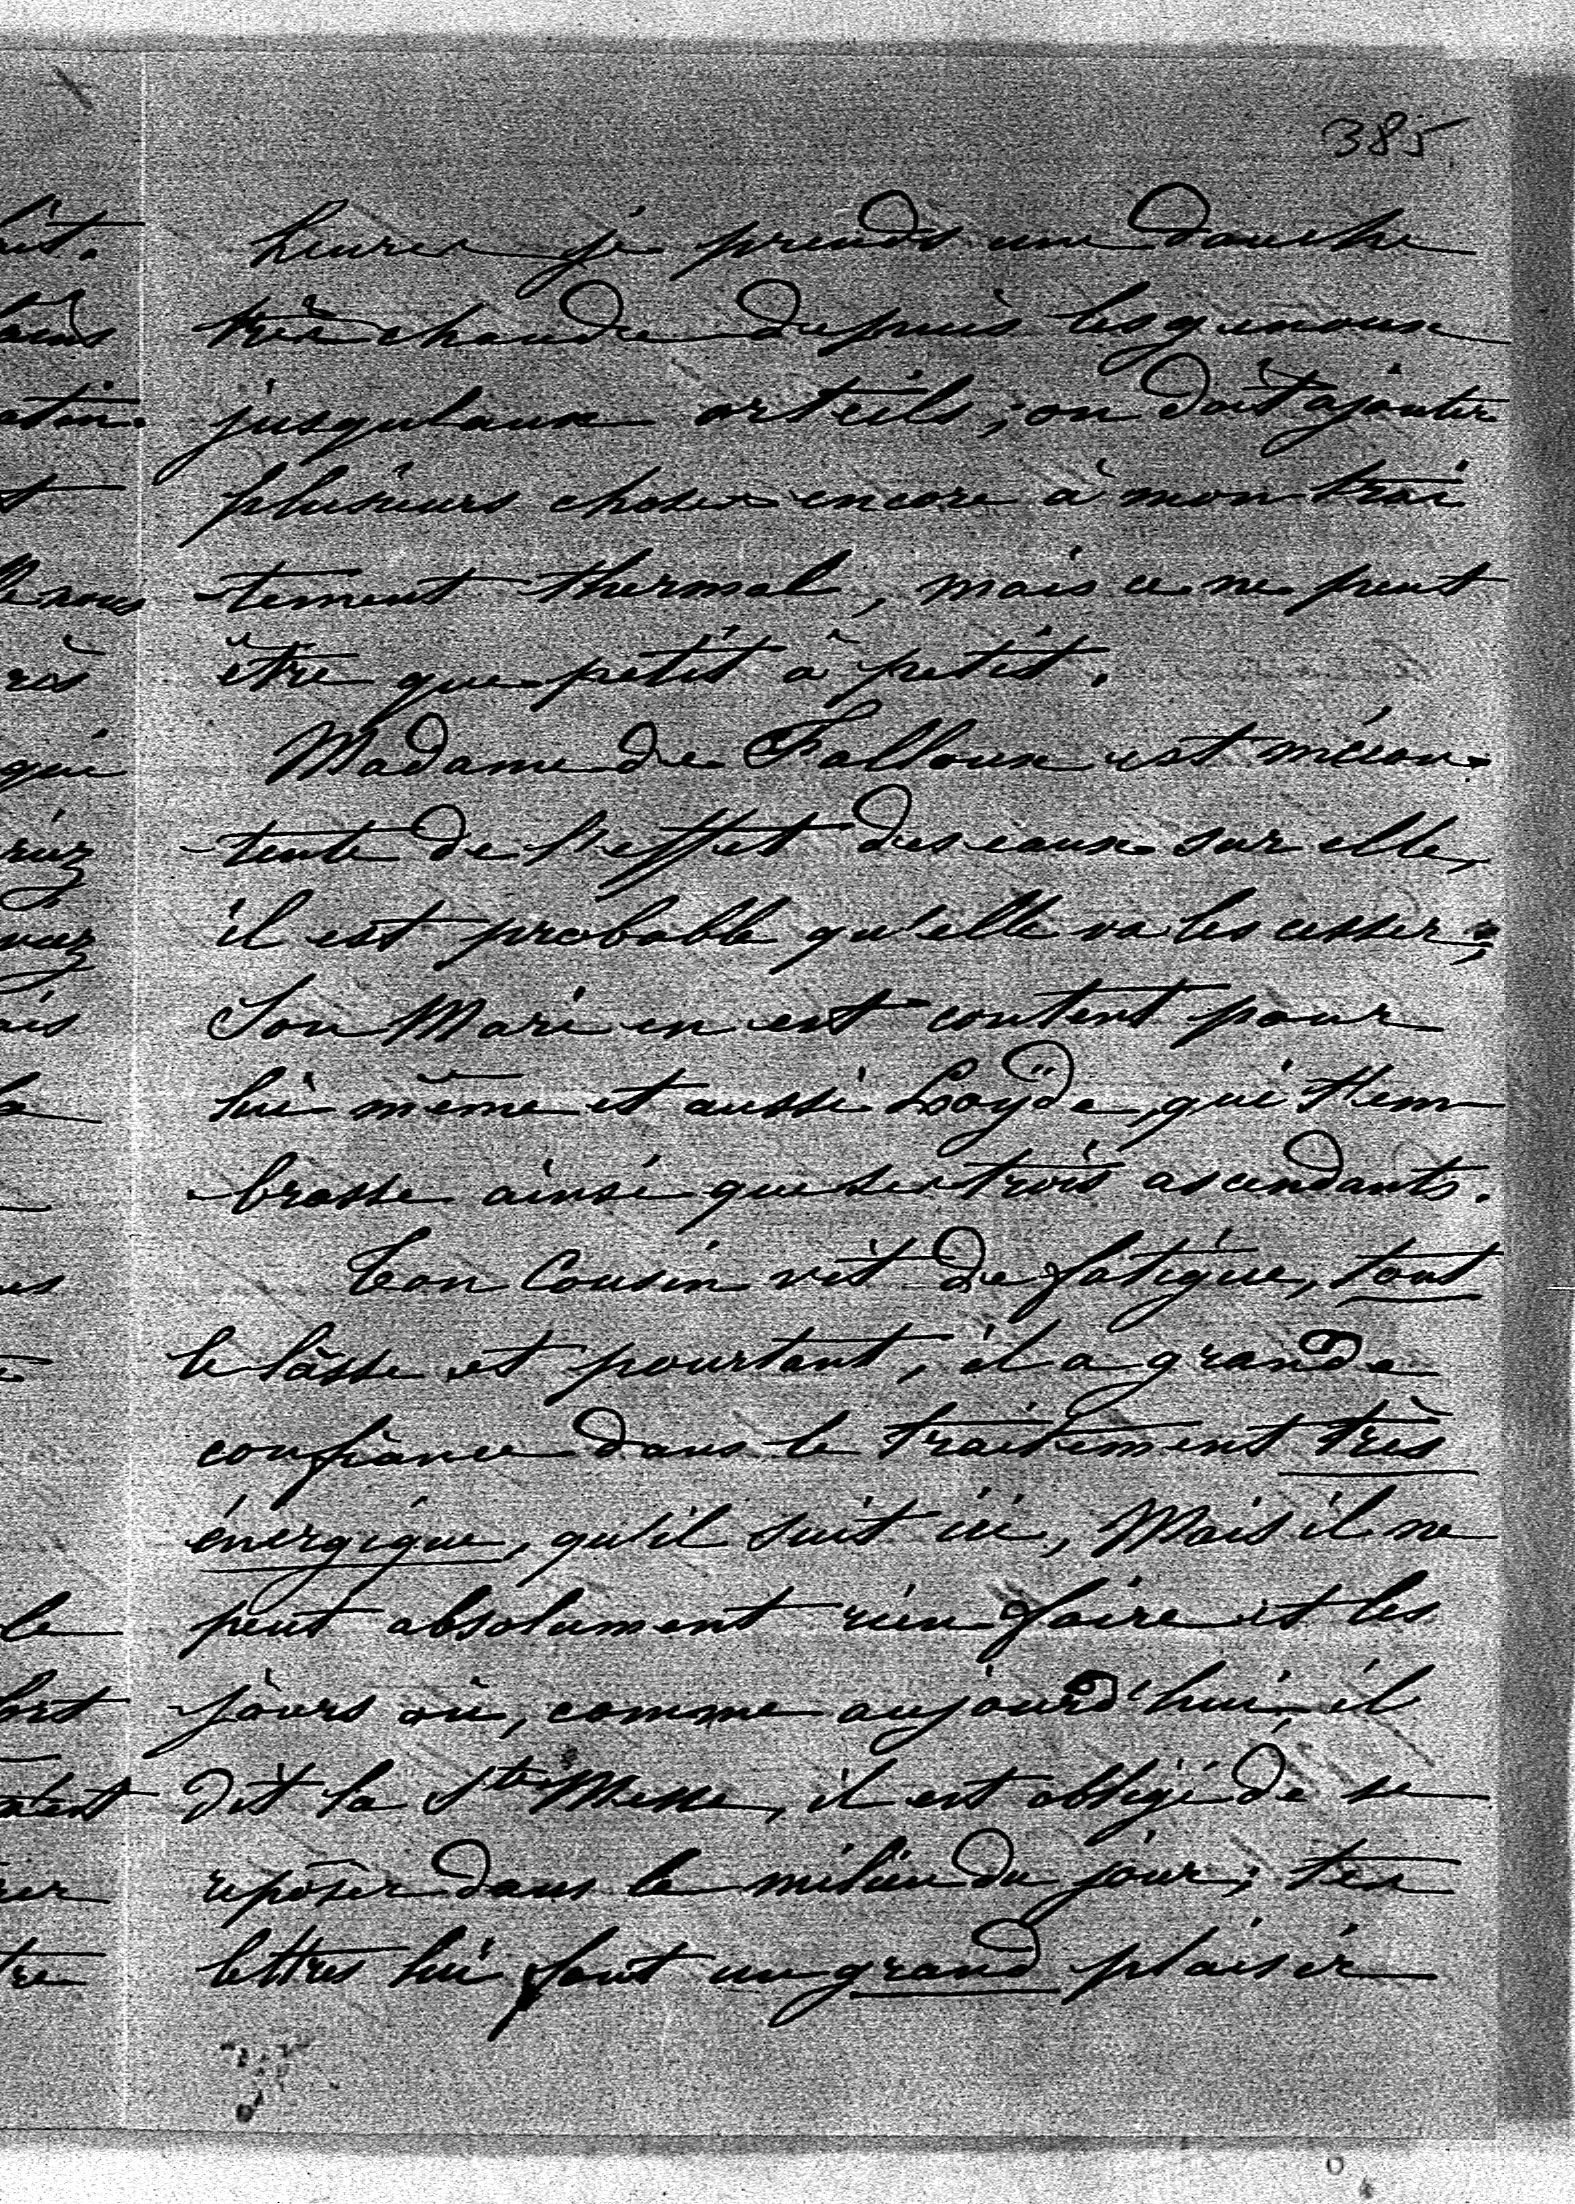 385
heures je prends une douche
très chaude depuis les genoux
jusqu'aux orteils, on doit ajouter
plusieurs choses encore à mon trai
-tement thermal, mais ce ne peut
être que petit à petit.
Madame de Falloux est mécon-
-tente de l'effet des eaux sur elle,
il est probable qu'elle va les cesser;
Son Mari en est content pour
lui même et aussi Loyde, qui t'em
-brasse ainsi que ses trois ascendants.
Ton Cousin vit de fatigue, tout
le lâsse et pourtant, il a grande
confiance dans le traitement très
énergique, qu'il suit ici, Mais il ne
peut absolument rien faire et les
jours où, comme aujourd'hui il
dit la Ste Messe, il est obligé de se
repôser dans le milieu du jour; tes
lettres lui font un grand plaisir